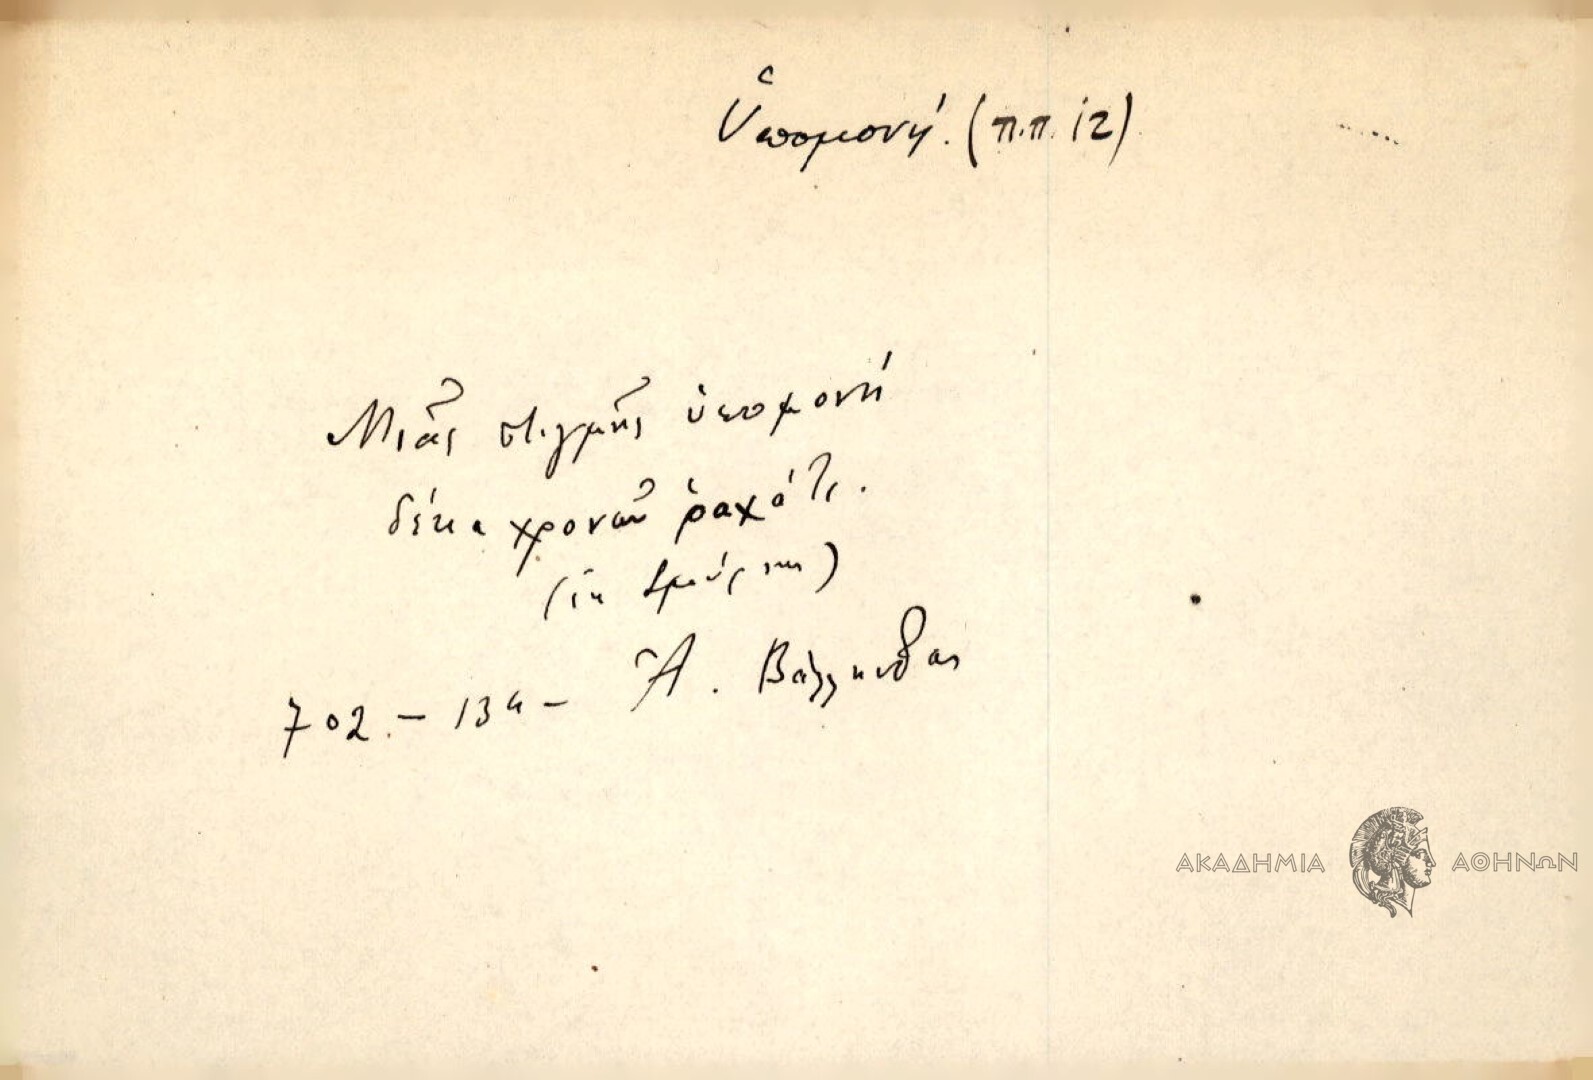 Ὑπομονή. (π.π. 12)
Μιᾶς στιγμῆς ὑπομονή
δέκα χρονῶν ῥαχάτι.
(ἐκ Σμύρνης)
702.- 134 - Ἀ.
ΑΚΑΔΗΜΙΑ ΑΘΗΝΩΝ